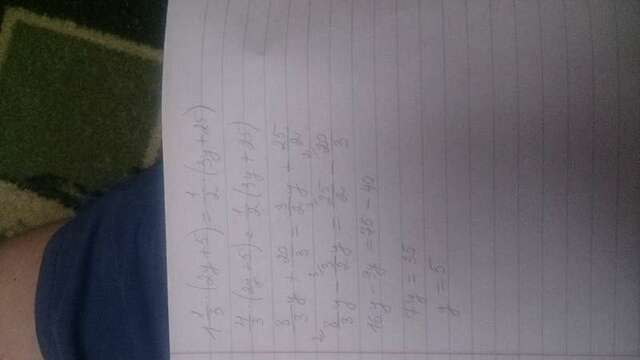 1 1/3 · (2y+5) = 1/2 · (3y+25)
4/3 · (2y+5) = 1/2 (3y+25)
8/3 y + 20/3 = 3/2 y + 25/2
2/ 8/3 y - 3/ 3/2 y = 3/ 25/2 - 2/ 20/3
16y - 9y = 75 - 40
7y = 35
y = 5